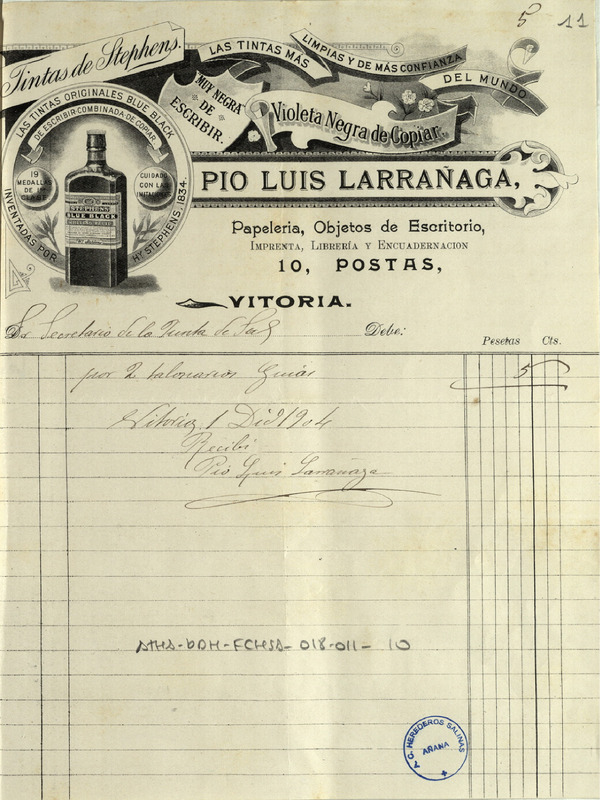 5 11
Tintas de Stephens.
LAS TINTAS MÁS LIMPIAS Y DE MÁS CONFIANZA DEL MUNDO
MUY NEGRA
DE
ESCRIBIR.
Violeta Negra de Copiar.
LAS TINTAS ORIGINALES BLUE BLACK
DE ESCRIBIR-COMBINADA DE COPIAR.
19
MEDALLAS
DE 1ª
CLASE
CUIDADO
CON LAS
IMITACIONES
STEPHENS
BLUE BLACK
INVENTADAS POR HY STEPHENS, 1834.
PIO LUIS LARRAÑAGA,
Papeleria, Objetos de Escritorio,
IMPRENTA, LIBRERÍA Y ENCUADERNACION
10, POSTAS,
VITORIA.
Sr Secretario de la Junta de Debe:
Pesetas Cts.
por 2 talonarios Guías 5
Vitoria 1 Dic 1904
Recibí
Pio Luis Larrañaga
ATHA-DAH-FCHSA-018-011-10
G. HEREDEROS SALINAS
AÑANA